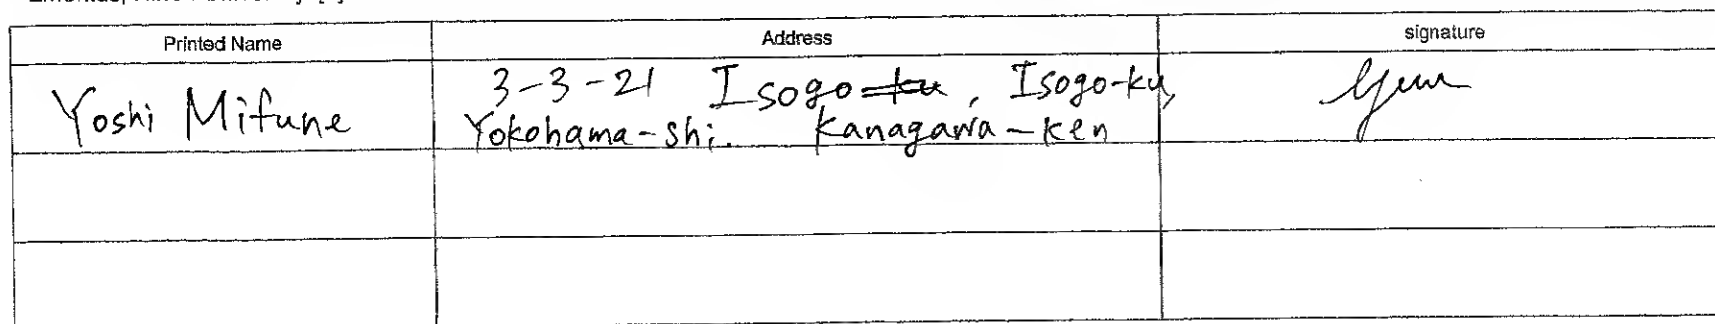 Printed Name Address signature
Yoshi Mifune 3-3-21 Isogo-ku, Isogo-ku,
Yokohama-shi. Kanagawa-ken